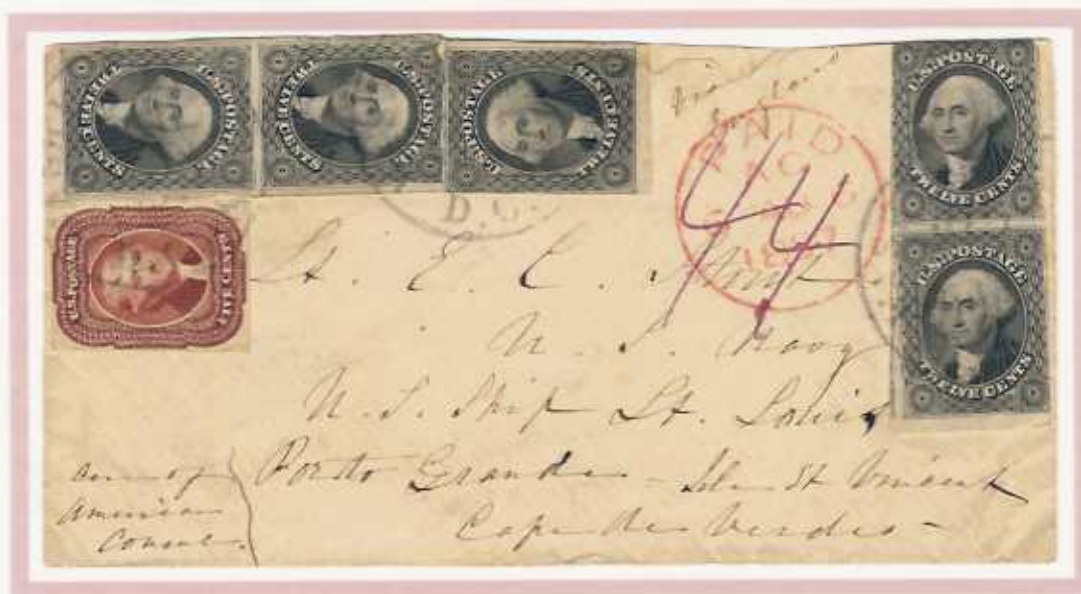 U.S. POSTAGE
TWELVE CENTS
U.S. POSTAGE
TWELVE CENTS
U.S. POSTAGE
TWELVE CENTS
U.S. POSTAGE
TWELVE CENTS
U.S. POSTAGE
TWELVE CENTS
U.S. POSTAGE
FIVE CENTS
PAID
44
D.C.
Lt. E. C.
U. S. Navy
U. S. Ship St. Louis,
Porto Grande - Isle St Vincent
Cape de Verdes -
Care of
American
Consul.